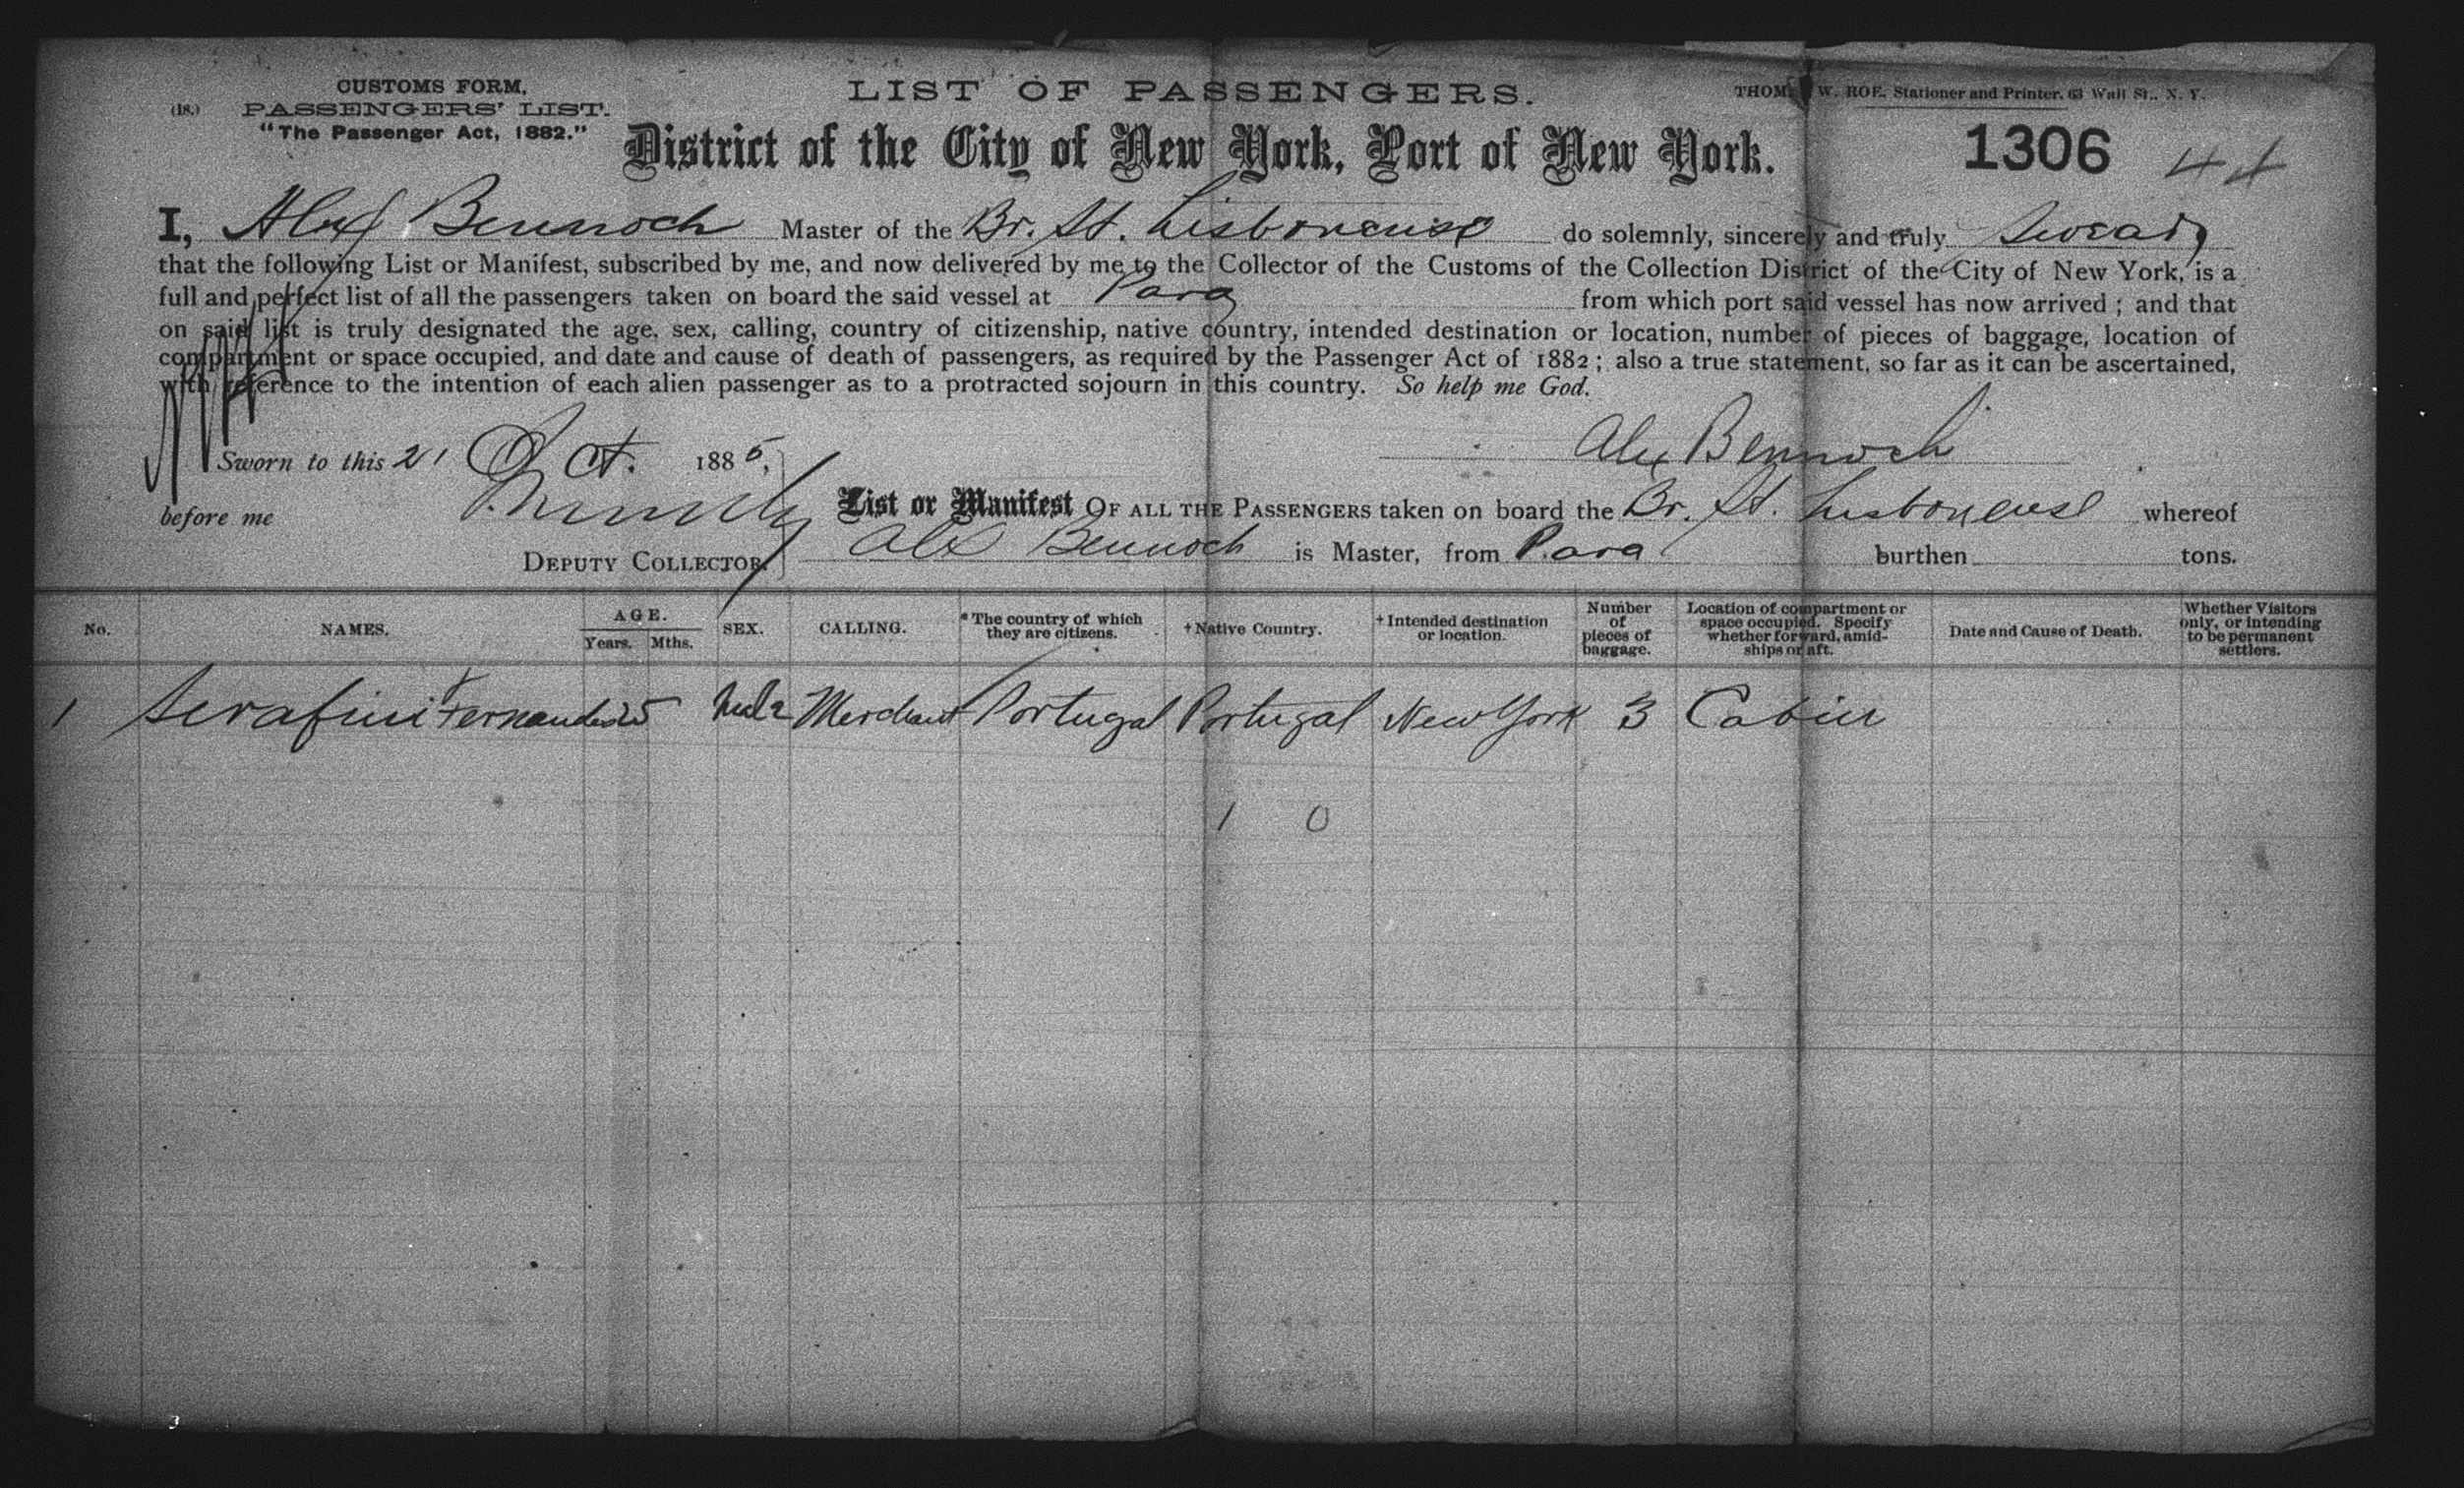 (18.)
CUSTOMS FORM,
PASSENGERS' LIST.
"The Passenger Act, 1882."
LIST OF PASSENGERS.
THOM W. ROE, Stationer and Printer, 63 Wall St., N. Y.
District of the City of New York, Port of New York.
1306 44
I, Alex Bennoch Master of the Br. St. Lisbonense do solemnly, sincerely and truly Swear
that the following List or Manifest, subscribed by me, and now delivered by me to the Collector of the Customs of the Collection District of the City of New York, is a
full and perfect list of all the passengers taken on board the said vessel at Para from which port said vessel has now arrived ; and that
on said list is truly designated the age, sex, calling, country of citizenship, native country, intended destination or location, number of pieces of baggage, location of
compartment or space occupied, and date and cause of death of passengers, as required by the Passenger Act of 1882 ; also a true statement, so far as it can be ascertained,
with reference to the intention of each alien passenger as to a protracted sojourn in this country. So help me God.
Alex Bennoch
Sworn to this 21 Oct. 1885,
before me
DEPUTY COLLECTOR.
List or Manifest OF ALL THE PASSENGERS taken on board the Br. St. Lisbonense whereof
Alex Bennoch is Master, from Para burthen tons.
No. NAMES. AGE. Years. Mths. SEX. CALLING. * The country of which they are citizens. † Native Country. † Intended destination or location. Number of pieces of baggage. Location of compartment or space occupied. Specify whether forward, amidships or aft. Date and Cause of Death. Whether Visitors only, or intending to be permanent settlers.
1 Serafini Fernandes 25 Male Merchant Portugal Portugal New York 3 Cabin
1 0